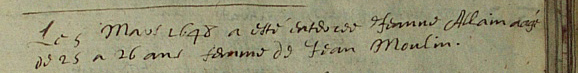 Le 5 Mars 1648 a esté enterree Jeanne Allain aagé
de 25 a 26 ans femme de Jean Moulin.